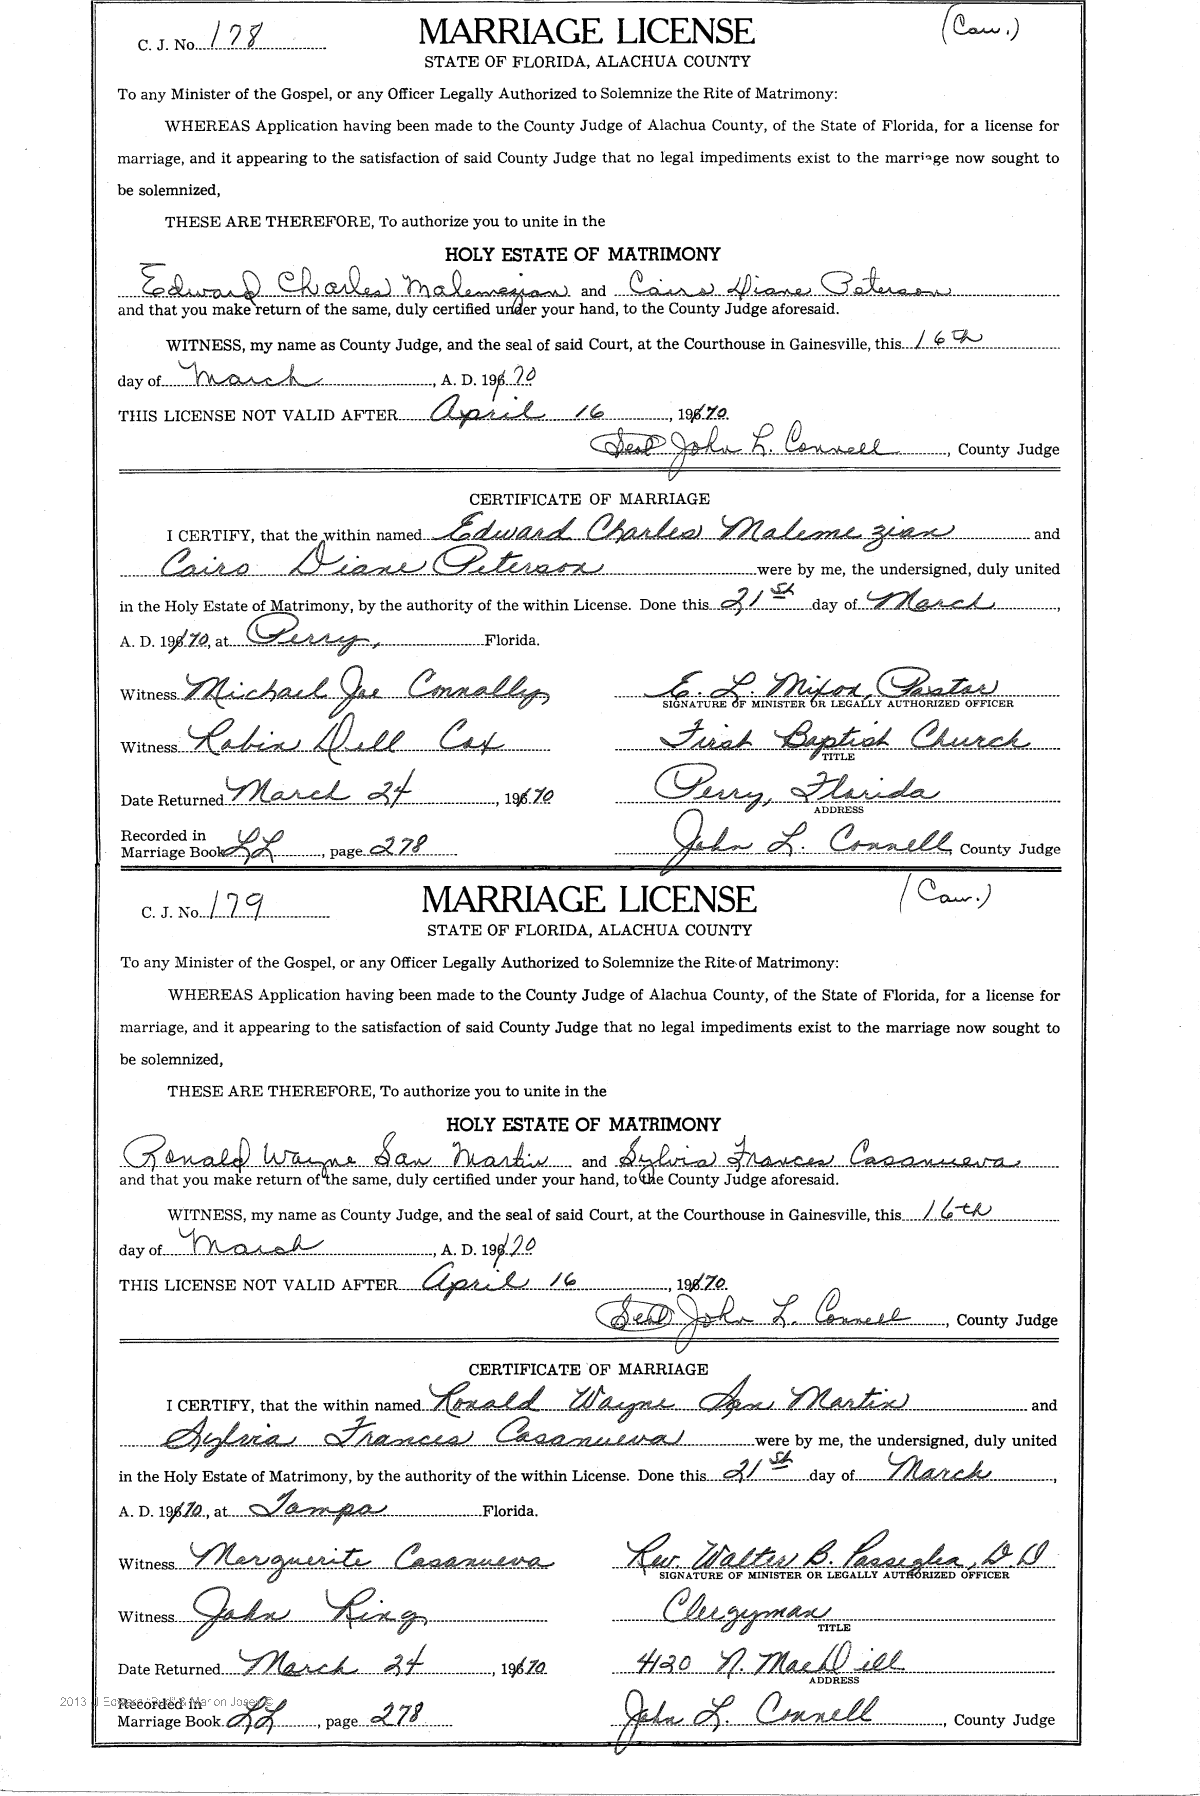 C. J. No. 178
MARRIAGE LICENSE
(Cau.)
STATE OF FLORIDA, ALACHUA COUNTY
To any Minister of the Gospel, or any Officer Legally Authorized to Solemnize the Rite of Matrimony:
WHEREAS Application having been made to the County Judge of Alachua County, of the State of Florida, for a license for
marriage, and it appearing to the satisfaction of said County Judge that no legal impediments exist to the marriage now sought to
be solemnized,
THESE ARE THEREFORE, To authorize you to unite in the
HOLY ESTATE OF MATRIMONY
Edward Charles Malemezian and Cairo Diane Peterson
and that you make return of the same, duly certified under your hand, to the County Judge aforesaid.
WITNESS, my name as County Judge, and the seal of said Court, at the Courthouse in Gainesville, this 16th
day of March, A. D. 1970
THIS LICENSE NOT VALID AFTER April 16, 1970.
(Seal) John L. Connell, County Judge
CERTIFICATE OF MARRIAGE
I CERTIFY, that the within named Edward Charles Malemezian and
Cairo Diane Peterson were by me, the undersigned, duly united
in the Holy Estate of Matrimony, by the authority of the within License. Done this 21st day of March,
A. D. 1970, at Perry, Florida.
Witness Michael Joe Connolly
E. L. Mixon, Pastor
SIGNATURE OF MINISTER OR LEGALLY AUTHORIZED OFFICER
Witness Robin Dell Cox
First Baptist Church
TITLE
Date Returned March 24, 1970
Perry, Florida
ADDRESS
Recorded in
Marriage Book LL, page 278
John L. Connell, County Judge
C. J. No. 179
MARRIAGE LICENSE
(Cau.)
STATE OF FLORIDA, ALACHUA COUNTY
To any Minister of the Gospel, or any Officer Legally Authorized to Solemnize the Rite of Matrimony:
WHEREAS Application having been made to the County Judge of Alachua County, of the State of Florida, for a license for
marriage, and it appearing to the satisfaction of said County Judge that no legal impediments exist to the marriage now sought to
be solemnized,
THESE ARE THEREFORE, To authorize you to unite in the
HOLY ESTATE OF MATRIMONY
Ronald Wayne San Martin and Sylvia Frances Casanueva
and that you make return of the same, duly certified under your hand, to the County Judge aforesaid.
WITNESS, my name as County Judge, and the seal of said Court, at the Courthouse in Gainesville, this 16th
day of March, A. D. 1970
THIS LICENSE NOT VALID AFTER April 16, 1970.
(Seal) John L. Connell, County Judge
CERTIFICATE OF MARRIAGE
I CERTIFY, that the within named Ronald Wayne San Martin and
Sylvia Frances Casanueva were by me, the undersigned, duly united
in the Holy Estate of Matrimony, by the authority of the within License. Done this 21st day of March,
A. D. 1970, at Tampa Florida.
Witness Marguerite Casanueva
Rev. Walter B. Passiglia, D.D
SIGNATURE OF MINISTER OR LEGALLY AUTHORIZED OFFICER
Witness John King
Clergyman
TITLE
Date Returned March 24, 1970
4120 N. MacDill
ADDRESS
Recorded in
Marriage Book LL, page 278
John L. Connell, County Judge
2013 J